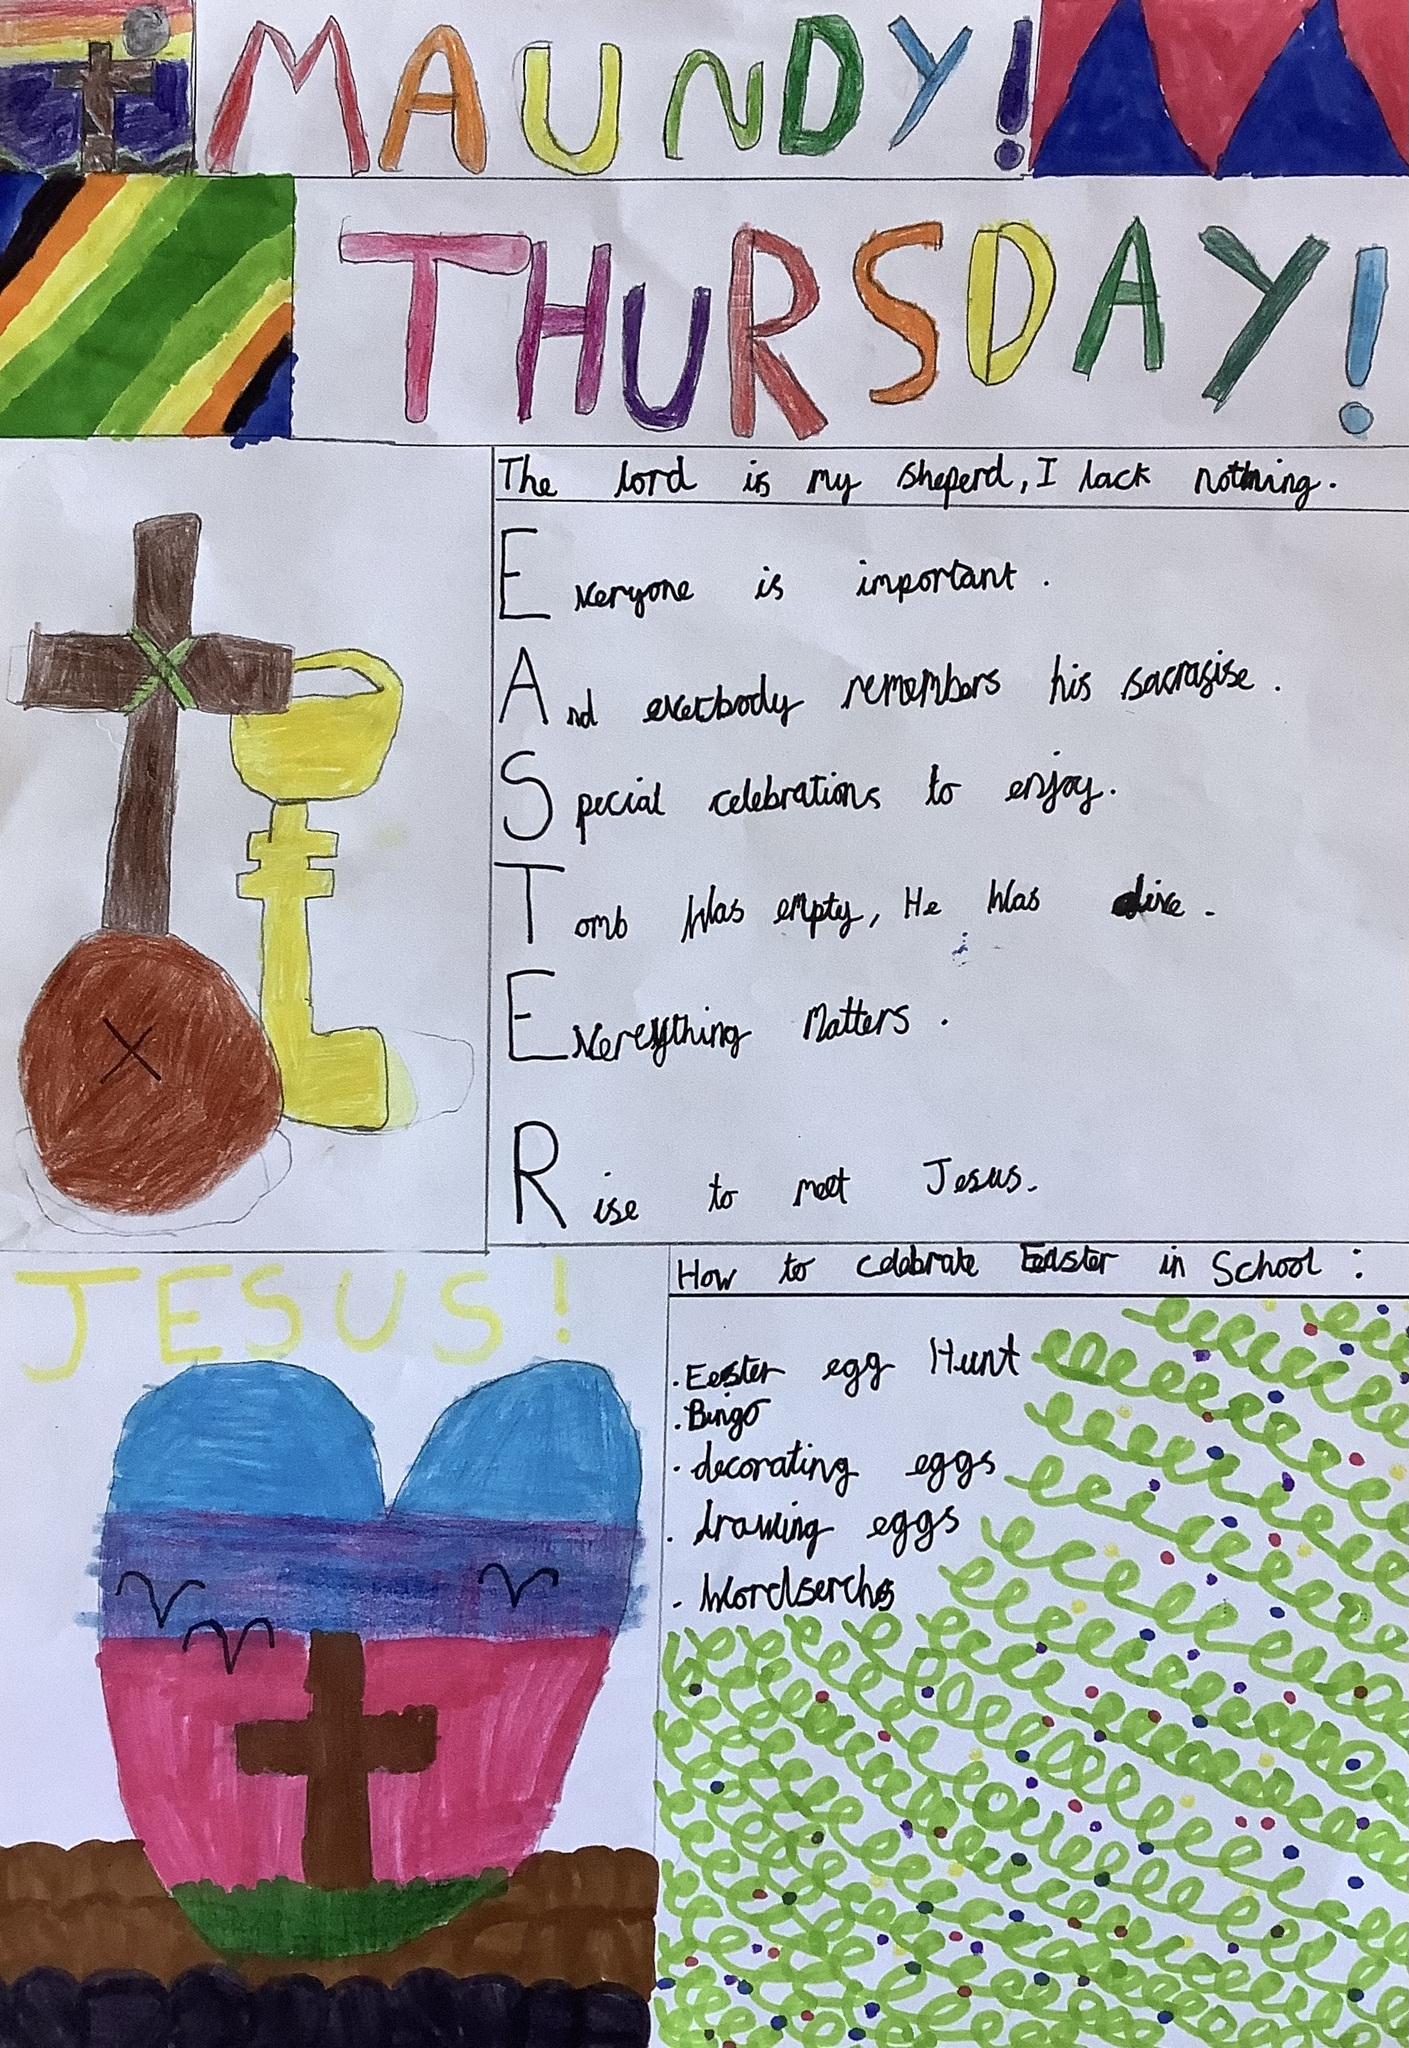 MAUNDY!
THURSDAY!
The lord is my sheperd, I lack nothing.
Everyone is important.
And exerbody remembers his sacrasise.
Special celebrations to enjoy.
Tomb was empty, He was alive.
Everything Matters.
Rise to meet Jesus.
JESUS!
How to celebrate Easter in School:
. Eester egg Hunt
. Bingo
. decorating eggs
. drawing eggs
. Wordserchs